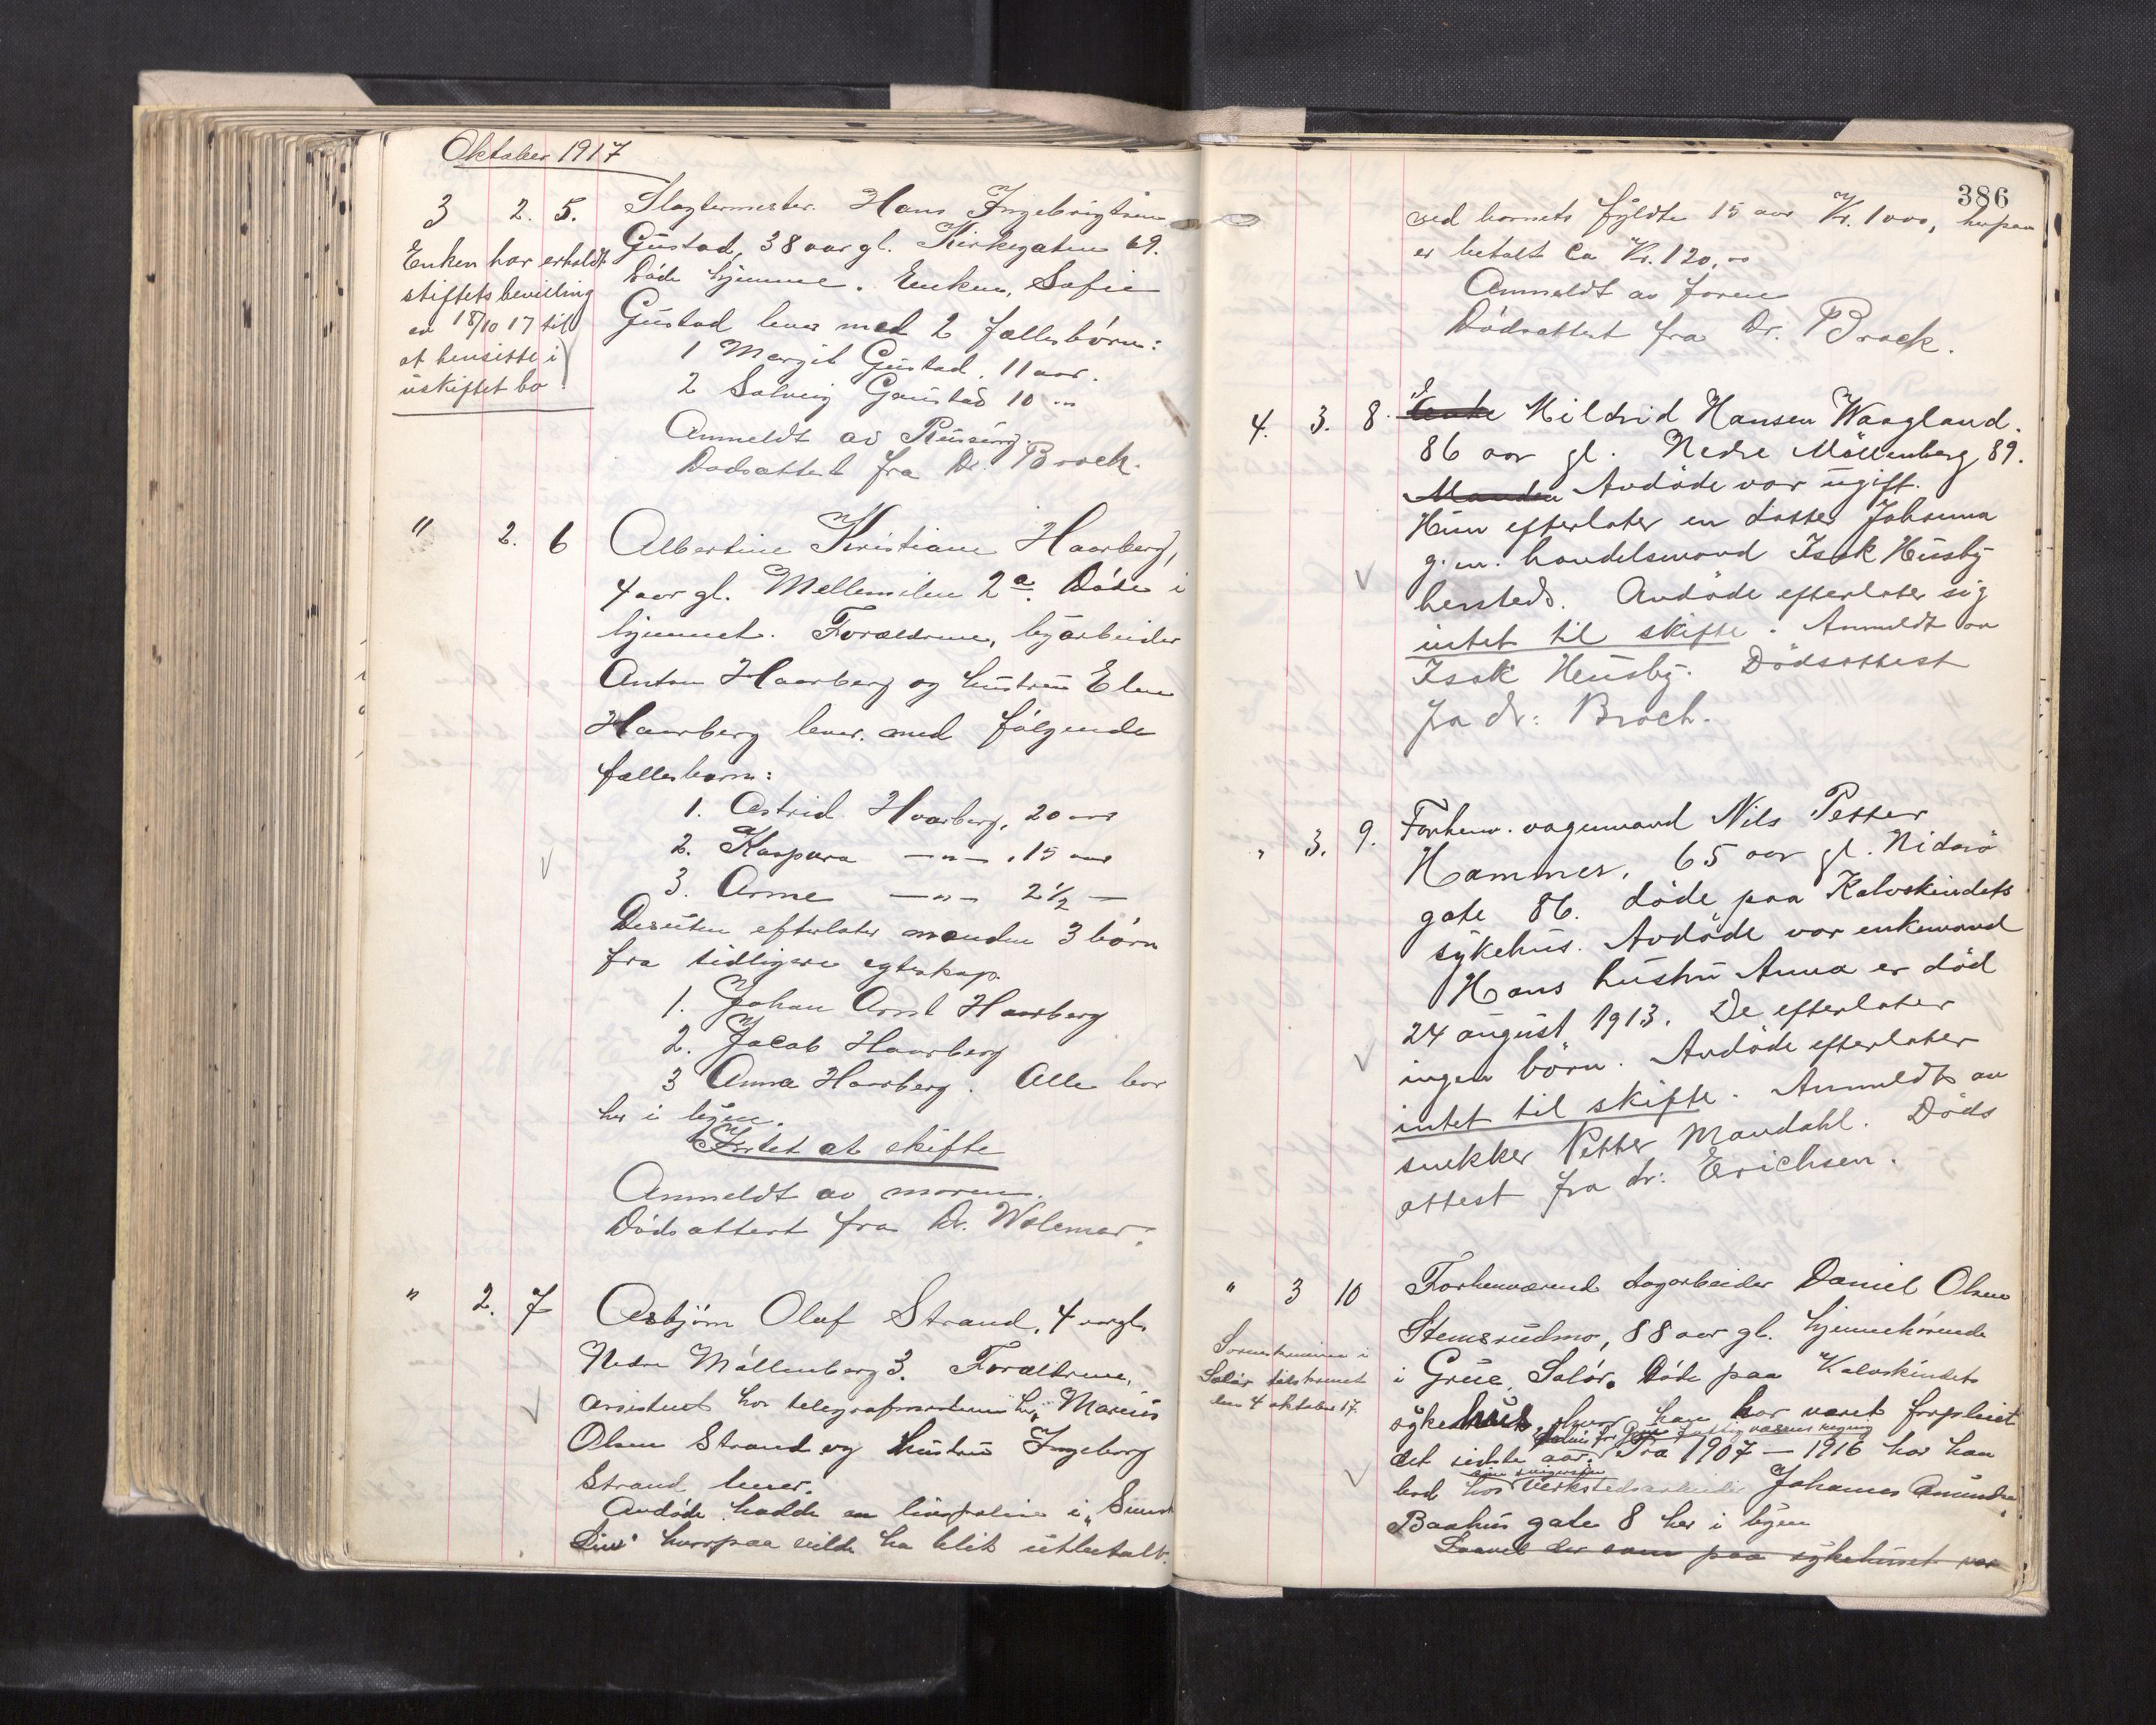 Oktober 1917
3 2. 5. Slagtermester Hans Ingebrigtsen
Gustad, 38 aar gl. Kirkegaten 69.
Døde hjemme. Enken, Sofie
Gustad lever med 2 fællesbørn:
1 Margit Gustad. 11 aar.
2 Solveig Gaustad 10 "
Anmeldt av
Dødsattest fra Dr. Brock.
Enken har erholdt
stiftets bevilling
av 18/10 17 til
at hensitte i
uskiftet bo.
" 2. 6 Albertine Kristiane Haarberg,
4 aar gl. Mellemilen 2a. Døde i
hjemmet. Forældrene, byarbeider
Anton Haarberg og hustru Elen
Haarberg lever med følgende
fællesbarn:
1. Astrid Haarberg, 20 aar
2. Kaspara —"— 15 aar
3. Arne —"— 2½ —
Desuten efterlater manden 3 børn
fra tidligere egteskap.
1. Johan Arnt Haarberg
2. Jacob Haarberg
3 Anna Haarberg. Alle bor
her i byen.
Intet at skifte
Anmeldt av moren.
Dødsattest fra Dr.
" 2. 7 Asbjørn Olaf Strand, 4 aar gl.
Nedre Møllenberg 3. Forældrene,
assistent hos telegrafmesteren her Marius
Olsen Strand og hustru Ingeborg
Strand lever.
Avdøde hadde en livspolice i „Svensk
Liv" hvorpaa vilde ha blit utbetalt
386
ved barnets fyldte 15 aar Kr. 1000, hvorpaa
er betalt ca Kr. 120.00
Anmeldt av faren
Dødsattest fra Dr. Brock.
4. 3. 8. Enke Mildrid Hansen Waagland.
86 aar gl. Nedre Møllenberg 89.
Manden Avdøde var ugift.
Hun efterlater en datter Johanna
g. m. handelsmand Isak Husby
hersteds. Avdøde efterlater sig
intet til skifte. Anmeldt av
Isak Husby. Dødsattest
fra dr: Broch.
" 3. 9. Forhenv. vognmand Nils Petter
Hammer, 65 aar gl. Nidarø
gate 86. døde paa Kalvskindets
sykehus. Avdøde var enkemand
Hans hustru Anna er død
24 august 1913. De efterlater
ingen børn. Avdøde efterlater
intet til skifte. Anmeldt av
snekker Petter Mandahl. Døds
attest fra dr: Erichsen.
" 3 10 Forhenværend dagarbeider Daniel Olsen
Stemsrudmo, 88 aar gl. hjemmehørende
i Grue, Solør. Døde paa Kalvskindets
sykehus, hvor han har været forpleiet
for Grue fattigvæsens regning
det sidste aar. Fra 1907 — 1916 har han
sin svigersøn
bod hos verkstedsarbeider Johannes Amundsen,
Baahus gate 8 her i byen
Saavel der som paa sykehuset var
Sorenskriveren i
Solør tilskrevet
den 4 oktober 17.